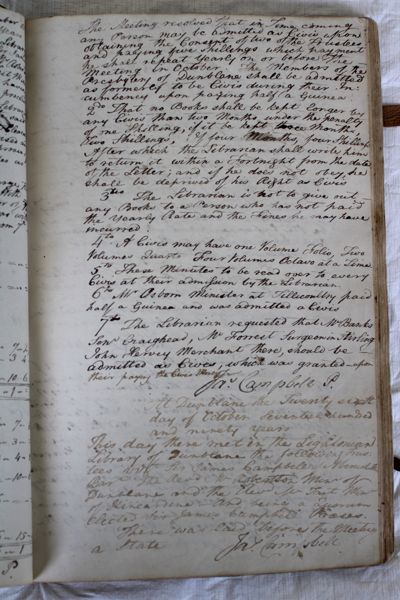 The Meeting resolved that in Time coming
any Person may be admitted as Civis upon
obtaining the Consent of two of the Trustees
and paying five Shillings which payment
he shall repeat Yearly on or before the
Meeting in October. The Members of the
Presbytery of Dunblane shall be admitted
as formerly to be Civis during their In-
cumbency upon paying half a Guinea
2d That no Books shall be kept Longer by
any Civis than two Months under the penalty
of one Shilling, if it be kept three Months
two Shillings, if four Months four Shillings
After which the Librarian shall write him
to return it within a Fortnight from the date
of the Letter; and if he does not obey, he
shall be deprived of his Right as Civis
3tio The Librarian is not to give out
any Books to a Person who has not paid
the Yearly Rate and the Fines he may have
incurred
4to A Civis may have one Volume Folio, Two
Volumes Quarto Four Volumes Octavo at a Time
5to These Minutes to be read over to every
Civis at their admission by the Librarian
6to Mr Osborn Minister at Tillicoultry paid
half a Guinea and was admitted a Civis
7th The Librarian requested that Mr Banks
Craighead, Mr Forrest Surgeon in Stirling
John Hervey Merchant there, should be
admitted as Cives, which was granted upon
their paying the Civis
Jas Campbell P.
At Dunblane the Twenty sixth
day of October Seventeen hundred
and ninety years
This day there met in the Leightonian
Library of Dunblane the following Trus-
tees viz Sir James Campbell
Bart The Revd Mr Robertson Minr of
Dunblane and the Revd Mr Tait Minr
of Kincardine And being a Quorum
elected Sir James Campbell Preses
There was laid before the Meeting
a State
Jas Campbell
P